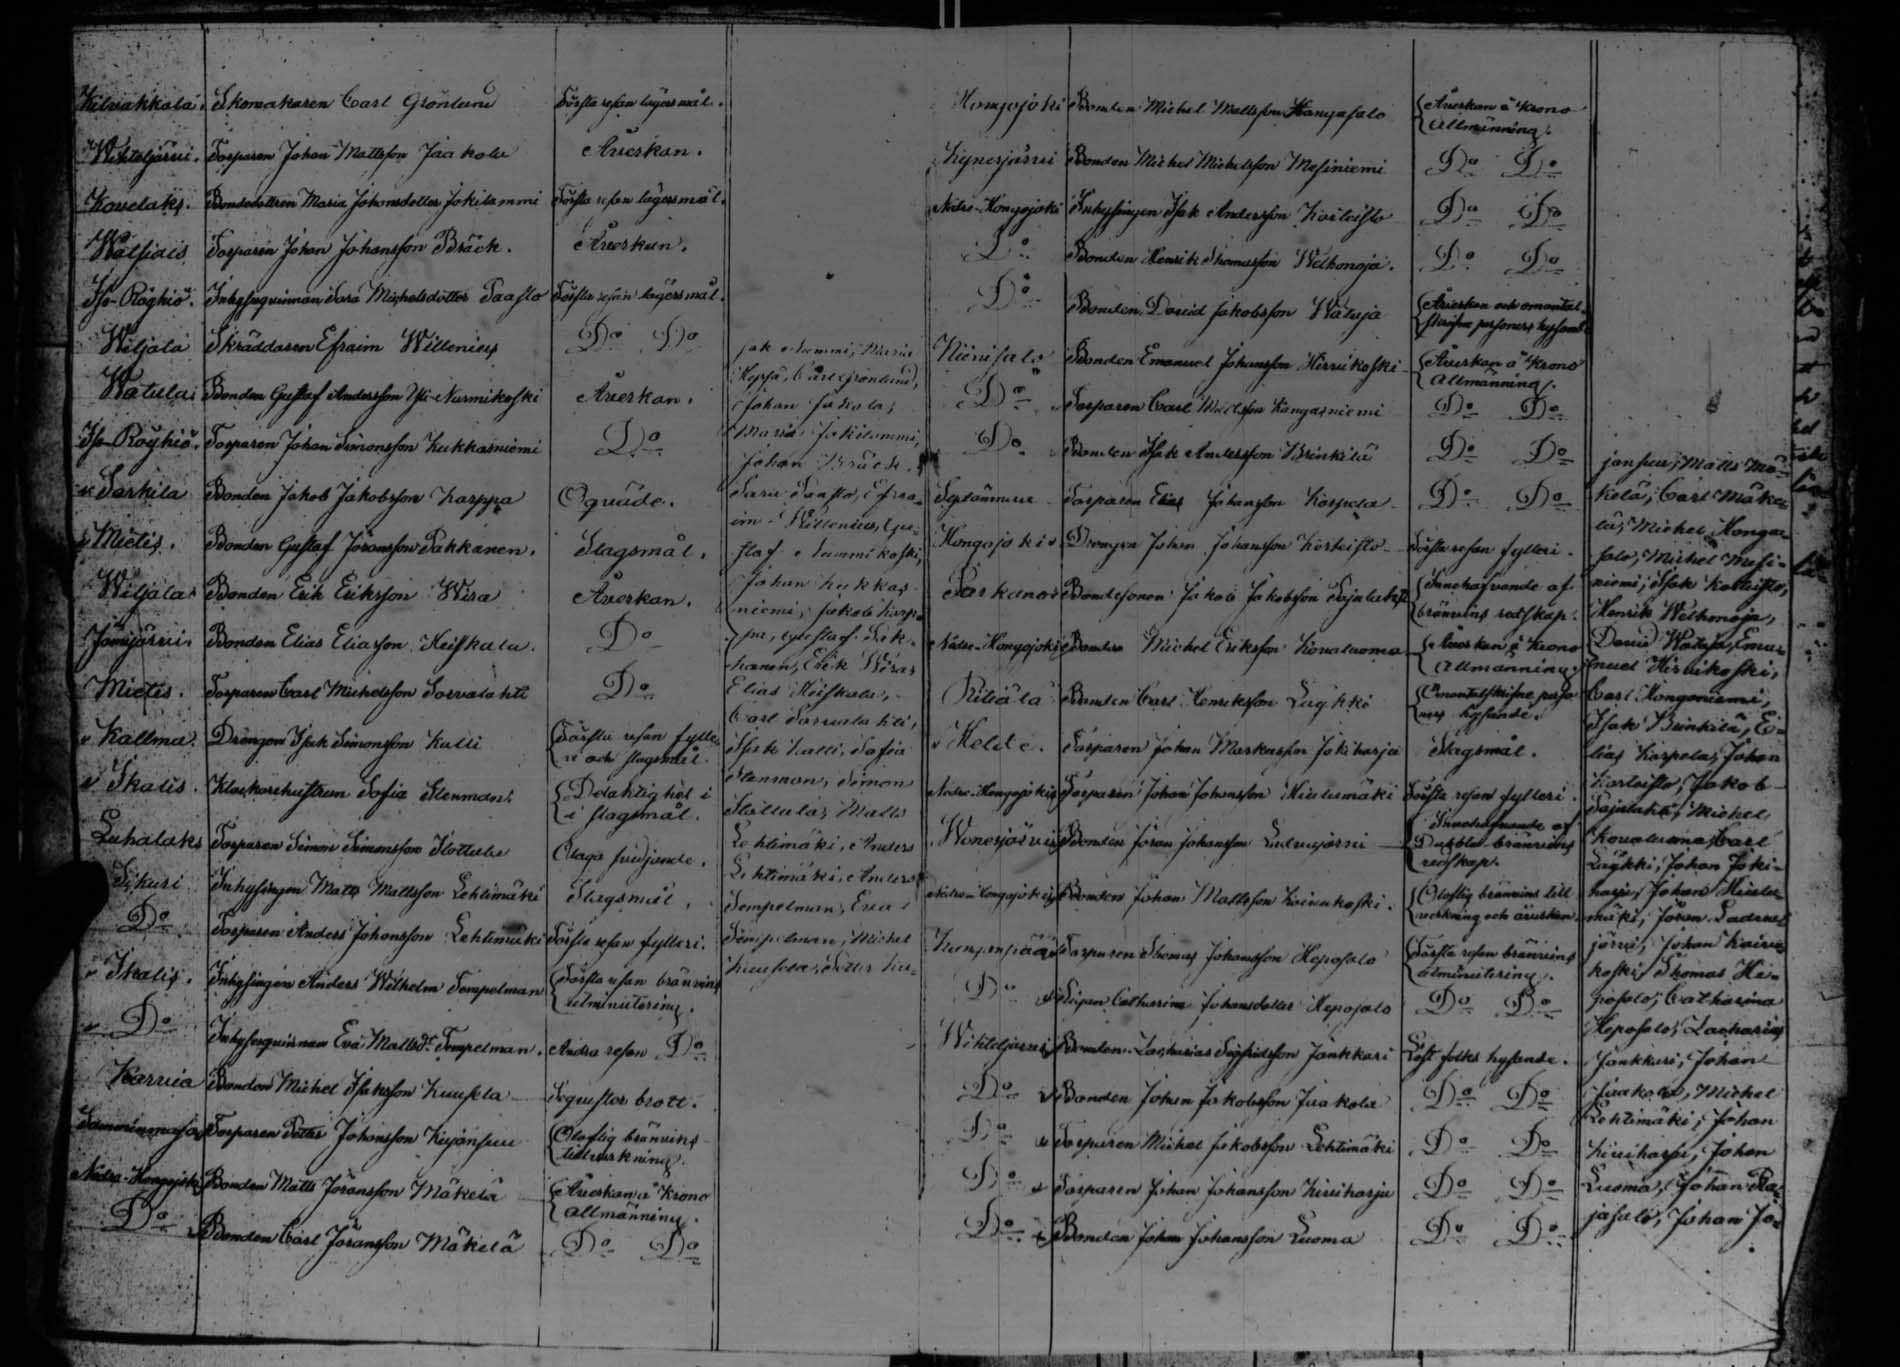 Kilvakkala. Skomakaren Carl Grönlund Första resan lägersmål.
Wihteljärvi. Torparen Johan Mattsson Jaakola Åverkan.
Kovelaks. Bondedottren Maria Johansdotter Jokilammi Första resan lägersmål.
Watsiais Torparen Johan Johansson Bräck. Åverkan.
Iso-Röyhiö. Inhysesqvinnan Sara Michelsdotter Taasto Första resan lägersmål.
Wiljala Skräddaren Efraim Willenius Do Do
Watula Bonden Gustaf Andersson Yli-Nurmikoski Åverkan.
Iso-Röyhiö. Torparen Johan Simonsson Kukkasniemi Do
Sarkila Bonden Jakob Jakobsson Karppa Oqväde.
Mietis. Bonden Gustaf Jöransson Pakkanen. Slagsmål.
Wiljala Bonden Erik Eriksson Wisa Åverkan.
Jämijärvi Bonden Elias Eliasson Heiskala. Do
Mietis. Torparen Carl Michelsson Sorvalahti Do
Kallma. Drengen Isak Simonsson Kalli Första resan fylle-
ri och slagsmål.
Ikalis. Klockarehustrun Sofia Stenman. Delaktighet i
i slagsmål.
Luhalaks Torparen Simon Simonsson
Sikuri Inhysingen Matts Mattsson Lehtimäki Slagsmål.
Do Torparen Anders Johansson Lehtimäki Första resan fylleri.
Ikalis. Inhysingen Anders Wilhelm Tempelman Första resan bränvins
utminutering.
Do Inhysesqvinnan Eva Mattsdr Tempelman. Andra resan Do
Karvia Bonden Michel Isaksson Kuusela brott.
Torparen Petter Johansson Kujansuu Oloflig bränvins
tillverkning.
Nedre-Hongojoki Bonden Matts Jöransson Mäkelä Åverkan å Krono
allmänning.
Do Bonden Carl Jöransson Mäkelä Do Do
Maria
Carl Grönlund,
Johan Jakola,
Maria Jokilammi,
Johan Bräck,
Sara Taasto, Efra-
im Willenius, Gu-
staf Nurmikoski,
Johan Kukkas-
niemi, Jakob Karp-
pa, Gustaf Pak-
kanen, Erik Wisa,
Elias Heiskala,
Carl Sorvalahti,
Isak Kalli, Sofia
Stenman, Simon
Matts
Lehtimäki, Anders
Lehtimäki, Anders
Tempelman, Eva
Tempelman, Michel
Kuusela, Petter Ku-
Hongojoki Bonden Michel Mattsson Hangasalo Åverkan å Krono
allmänning.
Kynesjärvi Bonden Michel Michelsson Mesiniemi Do Do
Nedre-Hongojoki Inhysingen Isak Andersson Do Do
Do Bonden Henrik Thomasson Welhonoja. Do Do
Do Bonden David Jakobsson Watuja Åverkan och omantal-
skrifne personers hysande
Niinisalo Bonden Emanuel Johansson Hirvikoski Åverkan å Krono
allmänning.
Do Torparen Carl Kangasniemi Do Do
Do Bonden Isak Andersson Brinkilä Do Do
Torparen Elias Johansson Karpela Do Do
Hongojoki Drengen Johan Johansson Första resan fylleri.
Parkano Bondesonen Jakob Jakobsson Innehafvande af
bränvins redskap.
Nedre-Hongojoki Bonden Michel Eriksson Kovaluoma Åverkan å Krono
allmänning.
Bonden Carl Henriksson Läykki Omantalskrifne perso-
ners hysande.
Torparen Johan Markusson Jokiharja Slagsmål.
Nedre-Hongojoki Torparen Johan Johansson Hietamäki Första resan fylleri.
Bonden Jöran Johansson Innehafvande af
bränvins
redskap.
Nedre-Hongojoki Bonden Johan Mattsson Oloflig bränvins till-
verkning och åverkan.
Torparen Thomas Johansson Heposalo Första resan bränvins
utminutering.
Do Pigan Catharina Johansdotter Heposalo Do Do
Wihteljärvi Bonden Zacharias Sigfridsson Jankkari Löst folks hysande.
Do Bonden Johan Jakobsson Jaakola Do Do
Do Torparen Michel Jakobsson Lehtimäki Do Do
Do Torparen Johan Johansson Kiviharju Do Do
Do Bonden Johan Johansson Luoma Do Do
jansuu, Matts Mä-
kelä, Carl Mäke-
lä, Michel Honga-
salo, Michel Mesi-
niemi, Isak
Henrik Welhonoja,
David Watuja, Ema-
nuel Hirvikoski,
Carl Kongasniemi,
Isak Brinkilä, E-
lias Karpela, Johan
Jakob
Michel
Kovaluoma, Carl
Läykki, Johan Joki-
harja, Johan Hieta-
mäki, Jöran
järvi, Johan
koski, Thomas He-
posalo, Catharina
Heposalo, Zacharias
Jankkari, Johan
Jaakola, Michel
Lehtimäki, Johan
Kiviharju, Johan
Luoma, Johan Ra-
jasalo, Johan Jo-